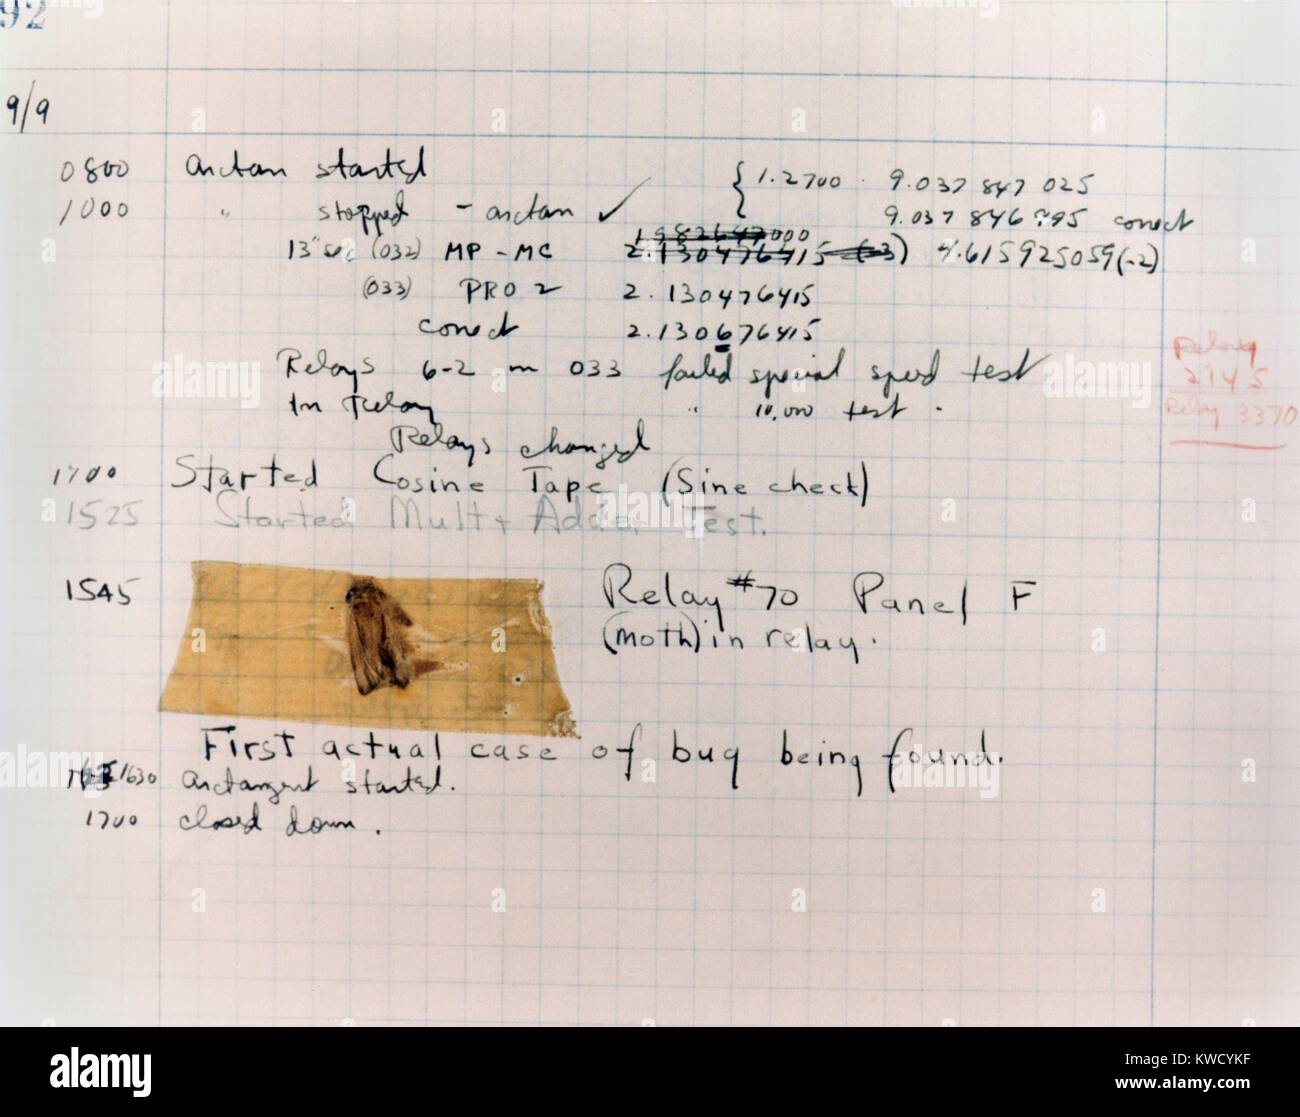 92
9/9
0800 arctan started { 1.2700 . 9.037 847 025
1000 " stopped - arctan ✓ 9.037 846 995 correct
1982647000
(032) MP - MC 2.130476415 (-3) 4.615925059(-2)
(033) PRO 2 2.130476415
correct 2.130676415
Relays 6-2 in 033 failed special speed test
In Relay " 10,000 test .
Relays changed
Relay
2145
Relay 3370
1700 Started Cosine Tape (Sine check)
1525 Started Mult + Adder Test.
1545 Relay #70 Panel F
(moth) in relay.
First actual case of bug being found.
1630 arctangent started.
1700 closed down .
alamy stock photo
KWCYKF
www.alamy.com